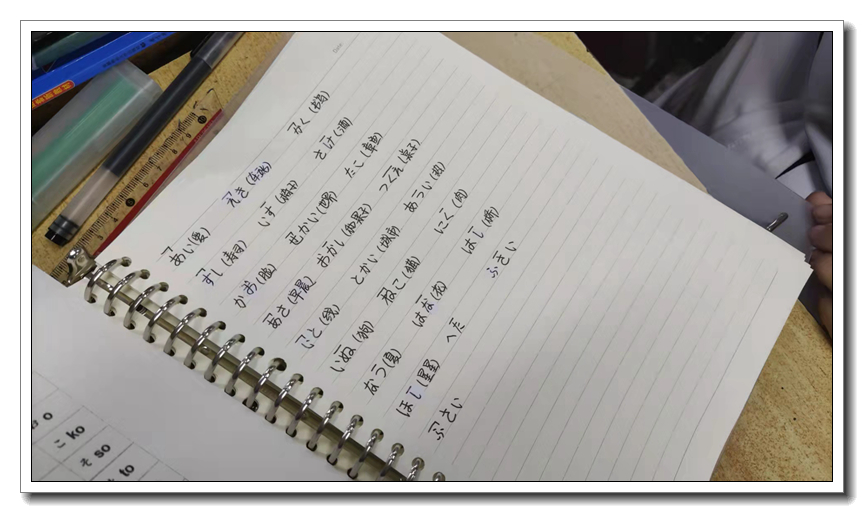 あい(爱) えき(车站) かく(书写)
すし(寿司) いす(椅子) さけ(酒)
かお(脸) せかい(世界) たこ(章鱼)
あさ(早晨) おかし(和果子) つくえ(桌子)
いと(线) とかい(城市) あつい
いぬ(狗) ねこ(猫) にく(肉)
なつ(夏) はな(花) はし(桥)
ほし(星星) へた ふさい
ふさい
o
こ ko
そ so
to